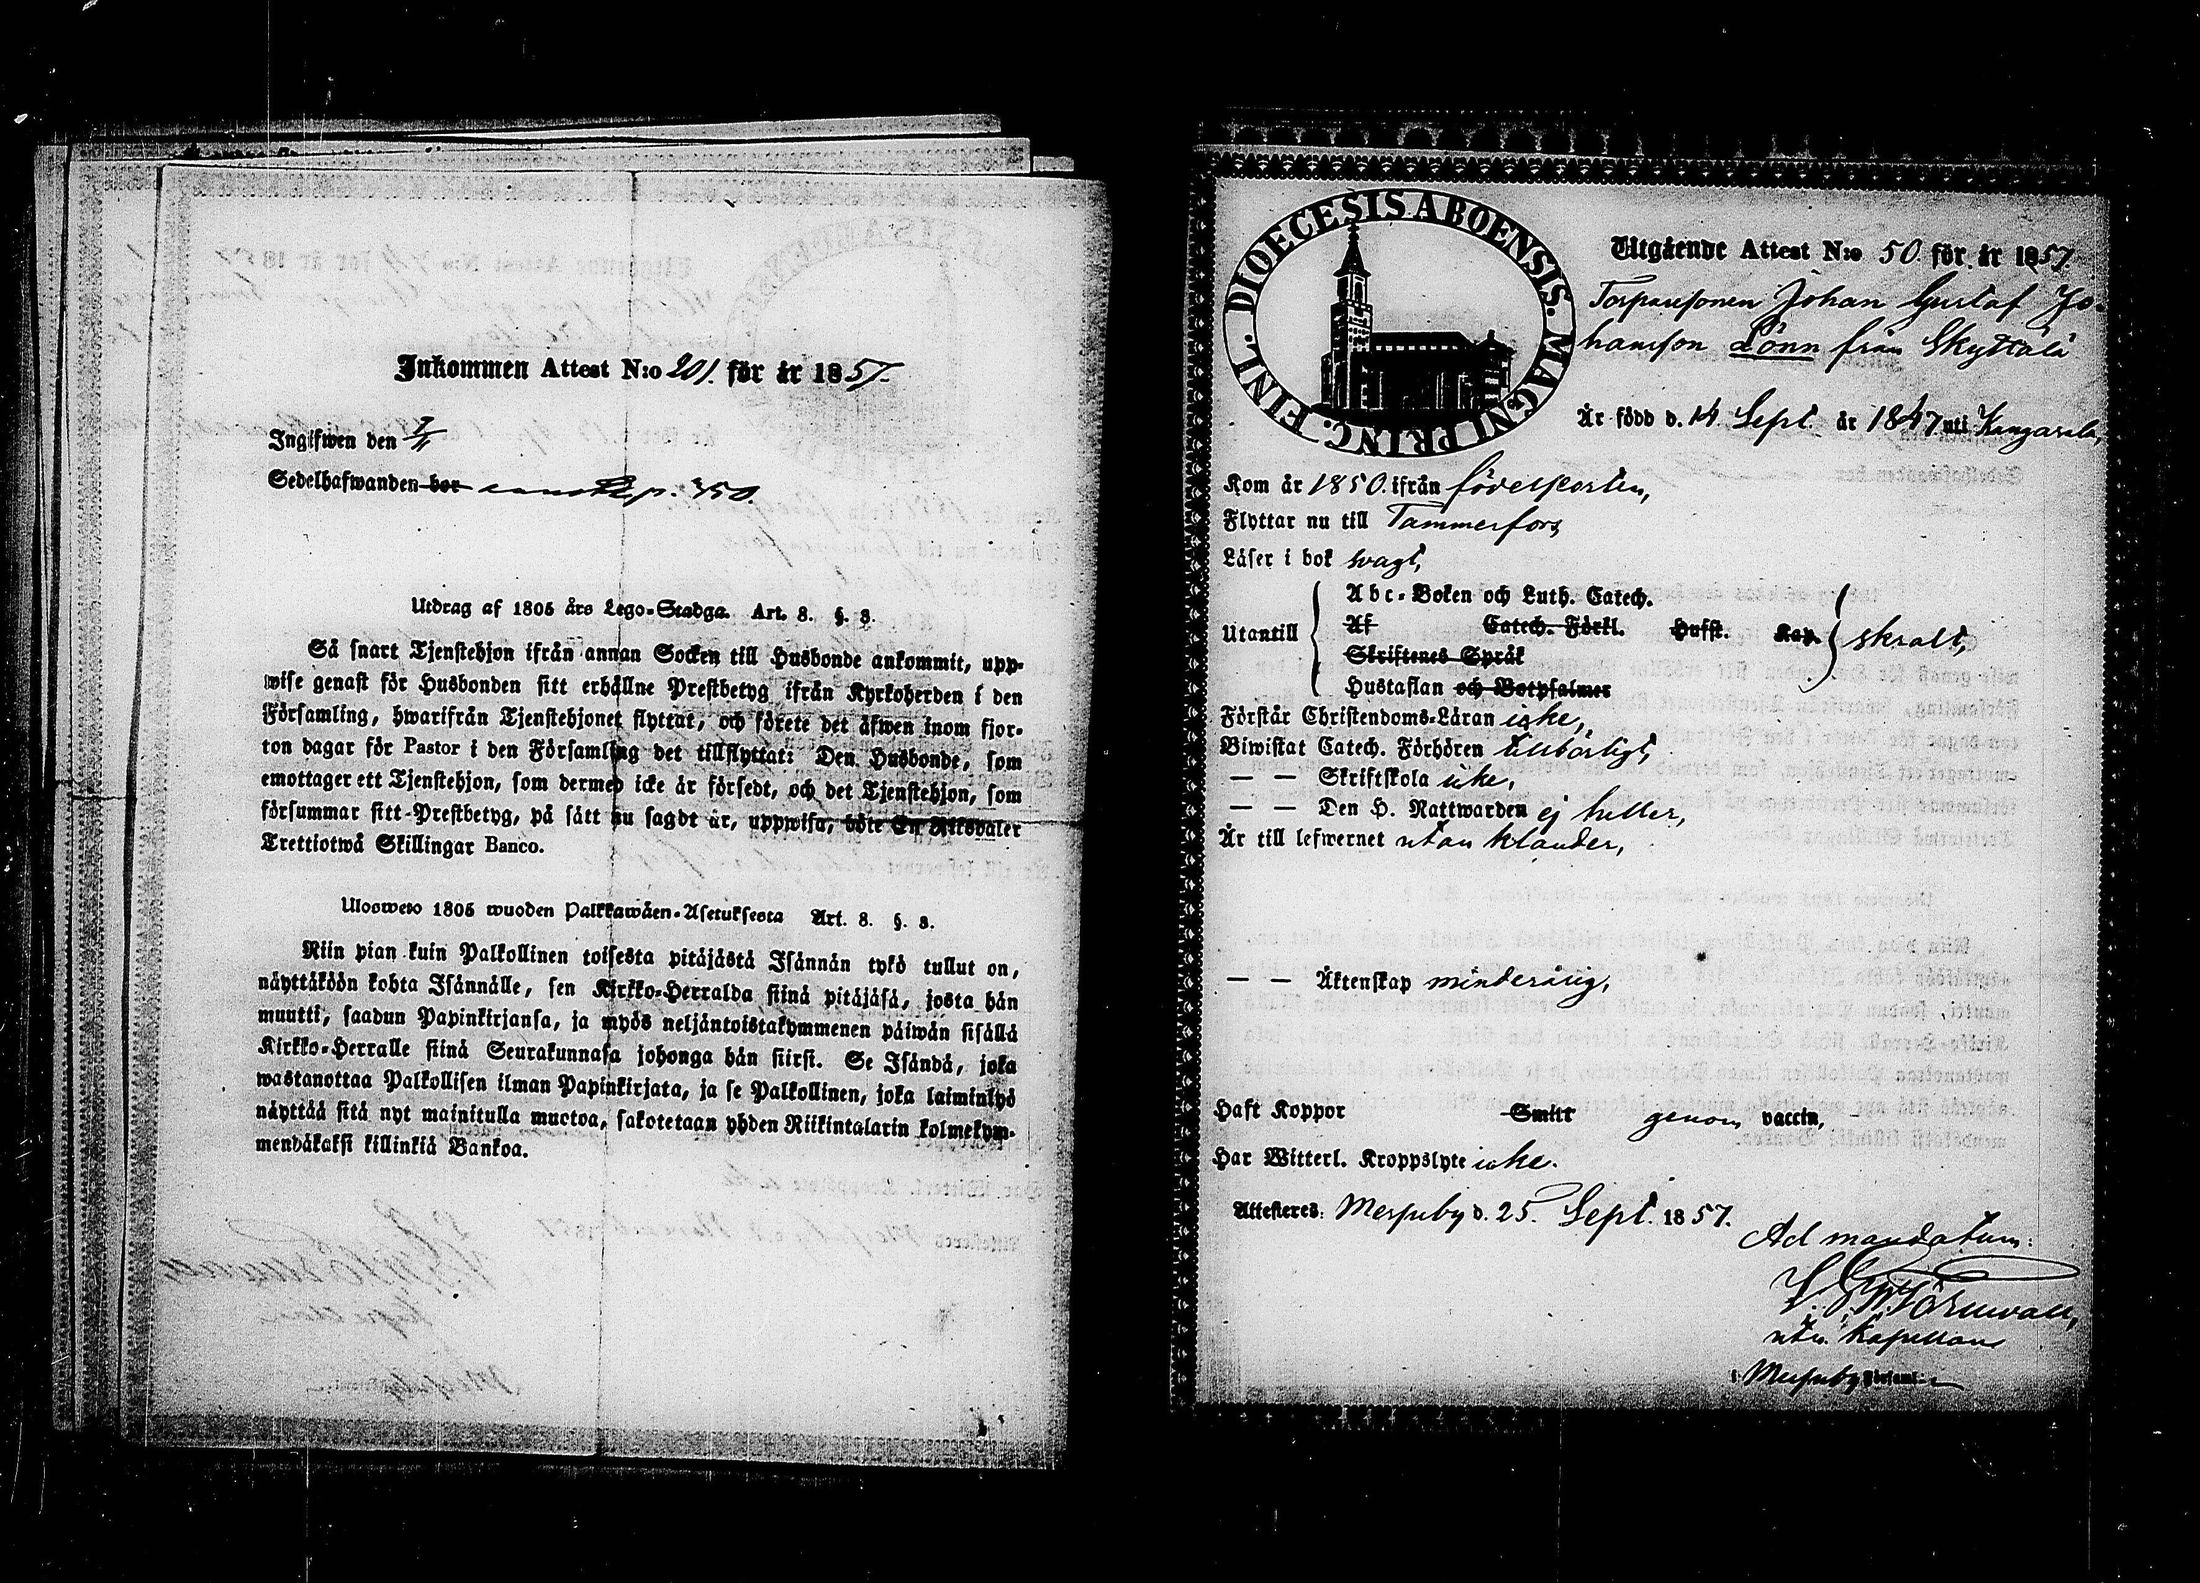 Inkommen Attest N:o 201. för år 1857.
Ingifwen den 7/11
Sedelhafwanden bor p. 350.
Utdrag af 1805 års Lego-Stadga. Art. 8. §. 3.
Så snart Tjenstehjon ifrån annan Socken till Husbonde ankommit, upp-
wise genast för Husbonden sitt erhållne Prestbetyg ifrån Kyrkoherden i den
Församling, hwarifrån Tjenstehjonet flyttat, och förete det äfwen inom fjor-
ton dagar för Pastor i den Församling det tillflyttat: Den Husbonde, som
emottager ett Tjenstehjon, som dermed icke är försedt, och det Tjenstehjon, som
försummar sitt Prestbetyg, på sätt nu sagdt är, uppwisa, böte En Riksdaler
Trettiotwå Skillingar Banco.
Ulosweto 1805 wuoden Palkkawäen-Asetuksesta Art. 8. §. 3.
Niin pian kuin Palkollinen toisesta pitäjästä Isännän tykö tullut on,
näyttäköön kohta Isännälle, sen Kirkko-Herralda siinä pitäjäsä, josta hän
muutti, saadun Papinkirjansa, ja myös neljäntoistakymmenen päiwän sisällä
Kirkko-Herralle siinä Seurakunnasa johonga hän siirsi. Se Isändä, joka
wastanottaa Palkollisen ilman Papinkirjata, ja se Palkollinen, joka laiminlyö
näyttää sitä nyt mainitulla muotoa, sakotetaan yhden Riikintalarin kolmekym-
mendäkaksi killinkiä Bankoa.
DIOECESIS ABOENSIS. MAGNI PRINC. FINL.
Utgående Attest N:o 50. för år 1857.
Torparesonen Johan Gustaf Jo-
hansson Lönn från Skyttälä
Är född d. 14 Sept. år 1847 uti Kangasala,
Kom år 1850. ifrån födelseorten,
Flyttar nu till Tammerfors,
Läser i bok swagt,
Abc-Boken och Luth. Catech.
Utantill Af Catech. Förkl. Husst. Kap. skralt,
Skriftenes Språk
Hustaflan och Botpsalmer
Förstår Christendoms-Läran icke,
Biwistat Catech. Förhören tillbörligt,
— — Skriftskola icke,
— — Den H. Nattwarden ej heller,
Är till lefwernet utan klander,
— — Äktenskap minderårig,
Haft Koppor Smitt genom vaccin,
Har Witterl. Kroppslyte icke.
Attesteres: Messuby d. 25. Sept. 1857.
Ad mandatum:
Törnwall,
Kapellans
i Messuby Församl.